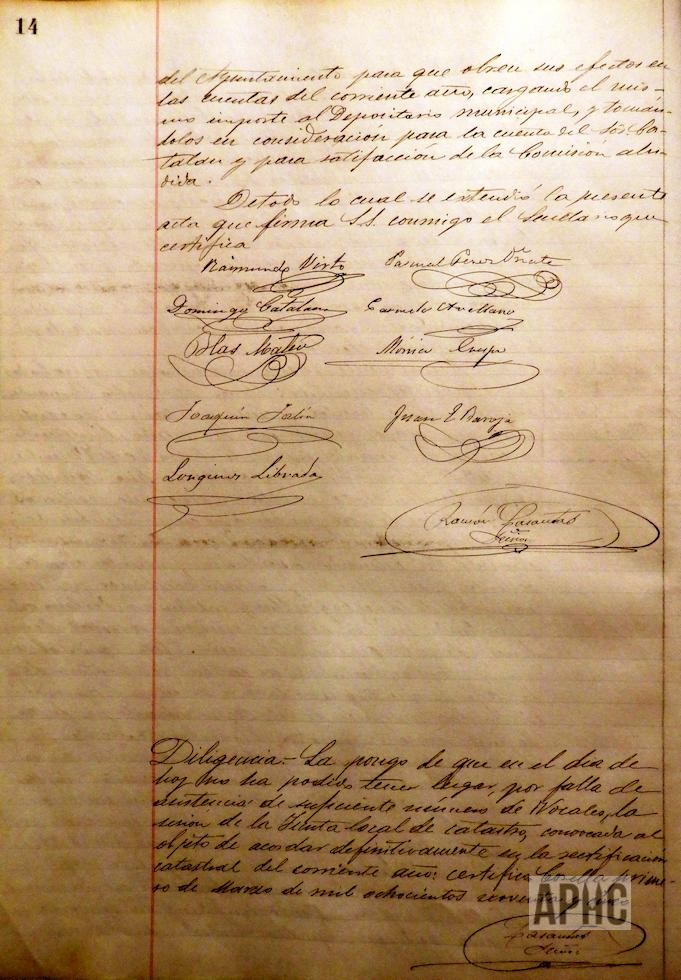 14
del Ayuntamiento para que obren sus efectos en
las cuentas del corriente año, cargando el mis-
mo importe al Depositario municipal, y tomán-
dolos en consideración para la cuenta del Sor. Ca-
talán y para satisfacción de la Comisión alu-
dida.
De todo lo cual se extendió la presente
acta que firma S.S. conmigo el Secretario que
certifica
Raimundo Virto Pascual Perez Oñate
Domingo Catalan Carmelo Arellano
Blas Mateo Mónico Crespo
Joaquín Juan Baroja
Longinos Librada
Ramón Pasantes
Diligencia.- La pongo de que en el dia de
hoy no ha podido tener lugar, por falta de
asistencia de suficiente número de Vocales, la
sesion de la Junta local de catastro, convocada al
objeto de acodar definitivamente en la rectificación
catastral del corriente año: certifico Corella prime-
ro de Marzo de mil ochocientos noventa y
APHC
Pasantes